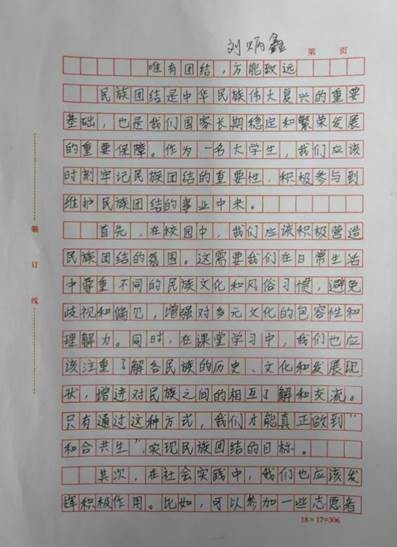 刘炳鑫
第 页
唯有团结,方能致远
民族团结是中华民族伟大复兴的重要
基础,也是我们国家长期稳定和繁荣发展
的重要保障。作为一名大学生,我们应该
时刻牢记民族团结的重要性,积极参与到
维护民族团结的事业中来。
首先,在校园中,我们应该积极营造
民族团结的氛围。这需要我们在日常生活
中尊重不同的民族文化和风俗习惯,避免
歧视和偏见,增强对多元文化的包容性和
理解力。同时,在课堂学习中,我们也应
该注重了解各民族的历史、文化和发展现
状,增进对民族之间的相互了解和交流。
只有通过这种方式,我们才能真正做到“
和合共生”,实现民族团结的目标。
其次,在社会实践中,我们也应该发
挥积极作用。比如,可以参加一些志愿者
装
订
线
18×17=306